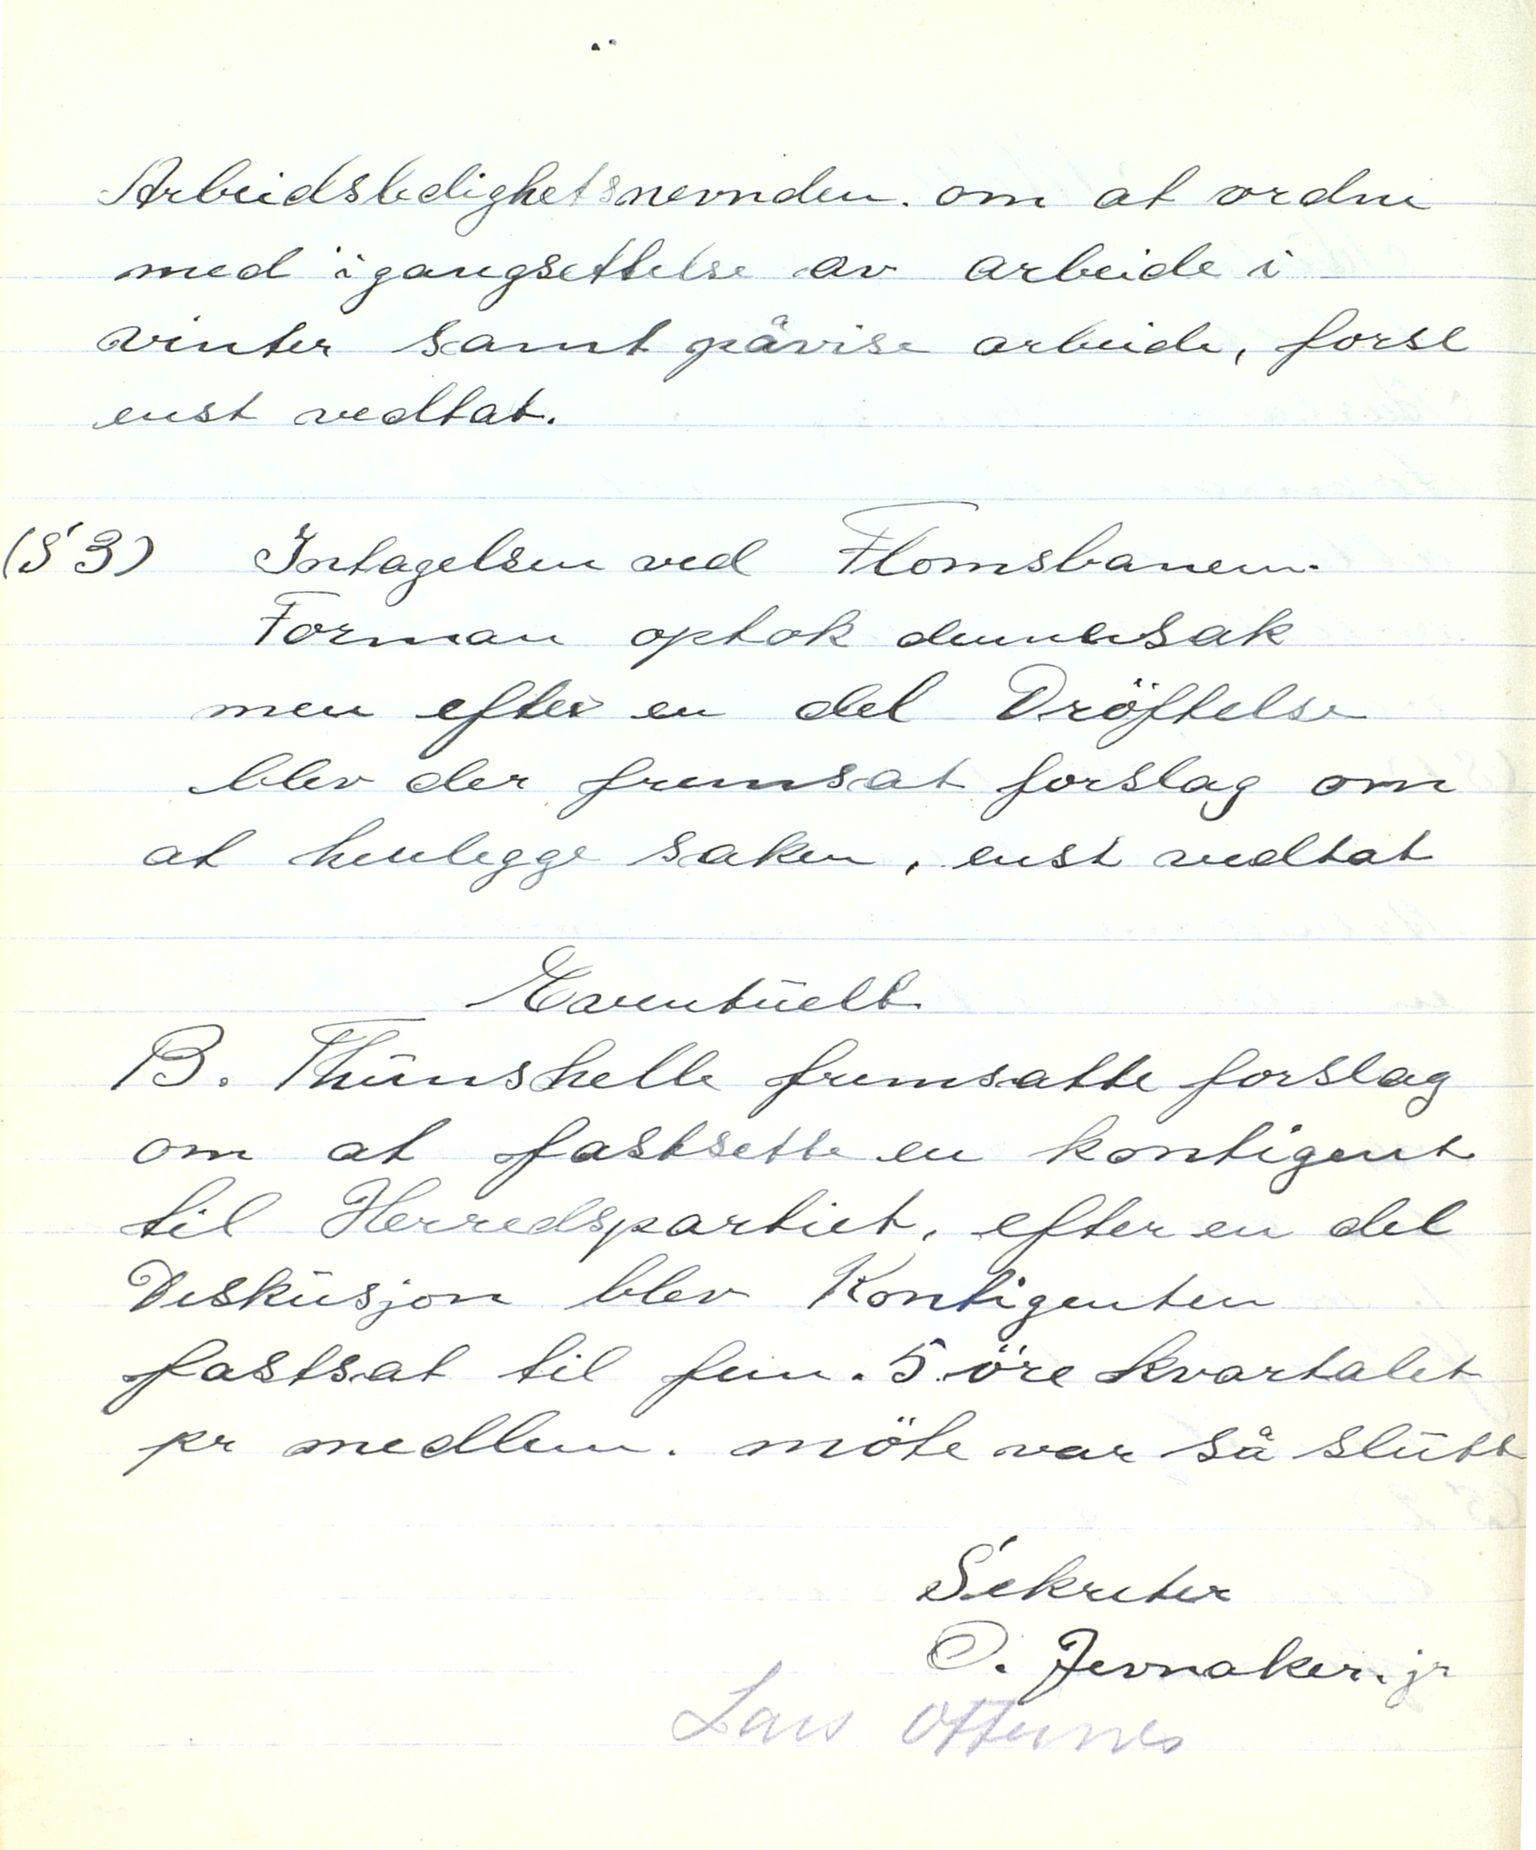 Arbeidsledighetsnevnden. om at ordne
med igangsettelse av arbeide i
vinter samt påvise arbeide, forsl
enst vedtat.
(§ 3) Intagelsen ved Flomsbanen.
Forman optok dennesak
men efter en del Dröftelse
blev der fremsat forslag om
at henlegge saken, enst vedtat
Eventüelt
B. Thünshelle fremsatte forslag
om at fastsette en kontigent
til Herredspartiet, efter en del
Diskusjon blev Kontigenten
fastsat til fem. 5 öre kvartalet
pr medlem. möte var så slütt
Sekreter
O. Jevnaker. jr
Lars Otternes